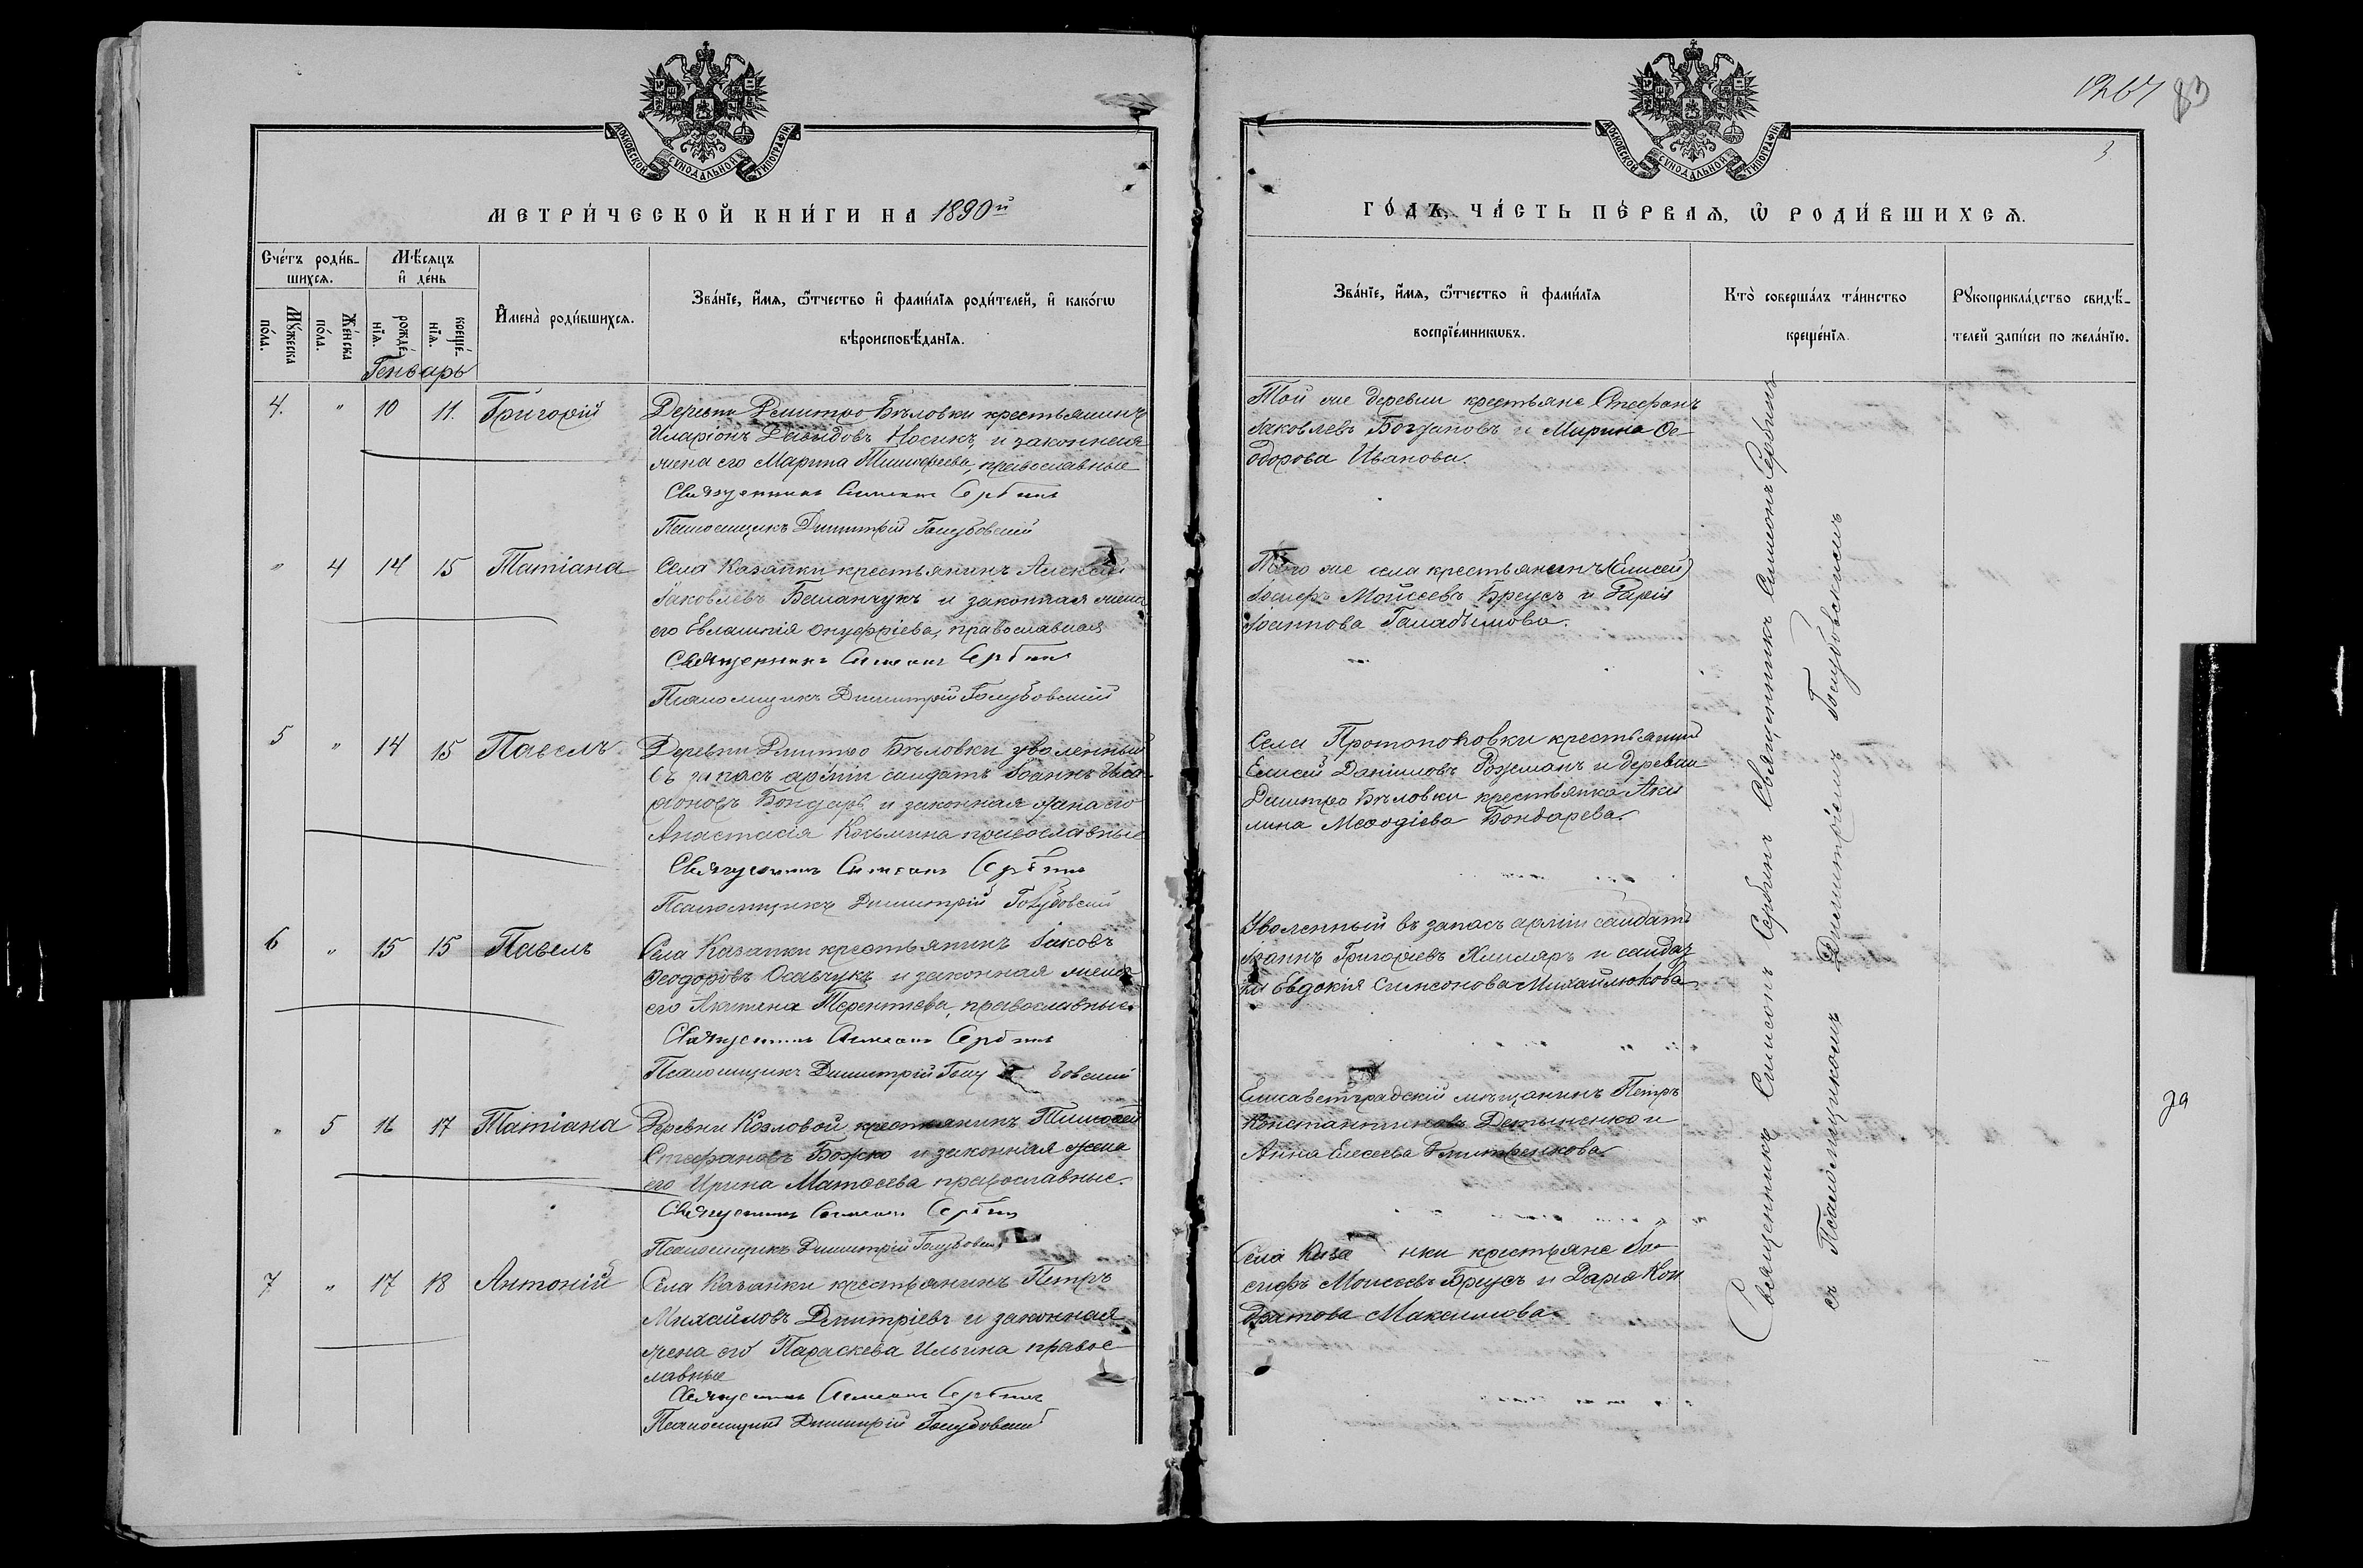 МОСКОВСКОЙ СѴНОДАЛЬНОЙ ТИПОГРАФІИ
МЕТРИ́ЧЕСКОЙ КНИ́ГИ НА 1890й
Сче́тъ роди́в-
шихсѧ.
Мꙋжеска
по́ла.
Же́нска
по́ла.
Мѣ́сяцъ
и҆ де́нь
рожде́-
нїѧ.
креще́-
нїѧ.
И҆мена̀ роди́вшихсѧ.
Зва́нїе, и҆́мѧ, ѻ҆́тчество и҆ фами́лїѧ роди́телей, и҆ како́гѡ
вѣроисповѣ́данїѧ.
Генварь
4. " 10 11. Григорій
Деревни Дмитро Бѣловки крестьянинъ
Иларіонъ Давидовъ Носикъ, и законная
жена его Марина Тимоѳеева, православные
Священникъ Симеонъ Сербинъ
Псаломщикъ Димитрій Голубовскій
" 4 14 15 Татіана
Села Казанки крестьянинъ Алексѣй
Іаковлевъ Баланчукъ и законная жена
его Евлампія Онуфріева, православная
Священникъ Симеонъ Сербинъ
Псаломщикъ Димитрій Голубовскій
5 " 14 15 Павелъ
Деревни Дмитро Бѣловки уволенный
въ запасъ арміи солдатъ Іоаннъ
Бондарь и законная жена его
Анастасія Козьмина православные
Священникъ Симеонъ Сербинъ
Псаломщикъ Димитрій Голубовскій
6 " 15 15 Павелъ
Села Казанки крестьянинъ Іаковъ
Ѳеодоровъ Осавчукъ и законная жена
его Акилина Терентіева, православные.
Священникъ Симеонъ Сербинъ
Псаломщикъ Димитрій Голу бовскій
" 5 16 17 Татіана
Деревни Козловой крестьянинъ Тимоѳей
Стефановъ Божко и законная жена
его Ирина Матѳеева православные.
Священникъ Симеонъ Сербинъ
Псаломщикъ Димитрій Голубовскій
7 " 17 18 Антоній
Села Казанки крестьянинъ Петръ
Михайловъ Дмитріевъ и законная
жена его Параскева Ильина правос-
лавные
Священникъ Симеонъ Сербинъ
Псаломщикъ Димитрій Голубовскій
1267 83
3
МОСКОВСКОЙ СѴНОДАЛЬНОЙ ТИПОГРАФІИ
ГО́ДЪ, ЧА́СТЬ ПЕ́РВАѦ, Ѽ РОДИ́ВШИХСѦ.
Зва́нїе, и҆́мѧ, ѻ҆́тчество и҆ фами́лїѧ
воспрїе́мникѡвъ.
Кто̀ соверша́лъ та́инство
креще́нїѧ.
Рꙋкоприкла́дство свидѣ́-
телей за́писи по жела́нїю.
Той же деревни крестьяне Стефанъ
Іаковлевъ Богдановъ и Марина Ѳе-
одорова Иванова.
Того же села крестьянинъ (Елисей)
Іосифъ Моисеевъ Бреусъ и Дарія
Іоаннова
Села Протопоповки крестьянинъ
Елисей Даніиловъ Рожманъ и деревни
Дмитро Бѣловки крестьянка Аки
лина Меѳодіева Бондарева.
Уволенный въ запасъ арміи солдатъ
Іоаннъ Григоріевъ Химляръ и солдат
ка Евдокія Симеонова Михайлюкова
Елисаветградскій мѣщанинъ Петръ
Константиновъ Детыненко и
Анна Елисеева Дмитренкова.
Села Каза нки крестьяне Іо-
сифъ Моисеевъ Бреусъ и Дарія Кон
дратова Максимова.
Священникъ Симеонъ Сербинъ Священникъ Симеонъ Сербинъ
съ Псаломщикомъ Димитріемъ Голубовскимъ